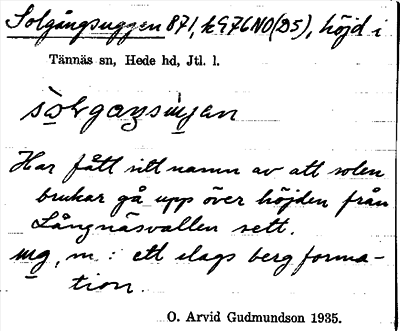 Solgångsuggen 871, k976NO(D5), höjd i
Tännäs sn, Hede hd, Jtl. l.
Har fått sitt namn av att solen
brukar gå upp över höjden från
Långnäsvallen sett.
m.: ett slags bergforma-
tion.
O. Arvid Gudmundson 1935.